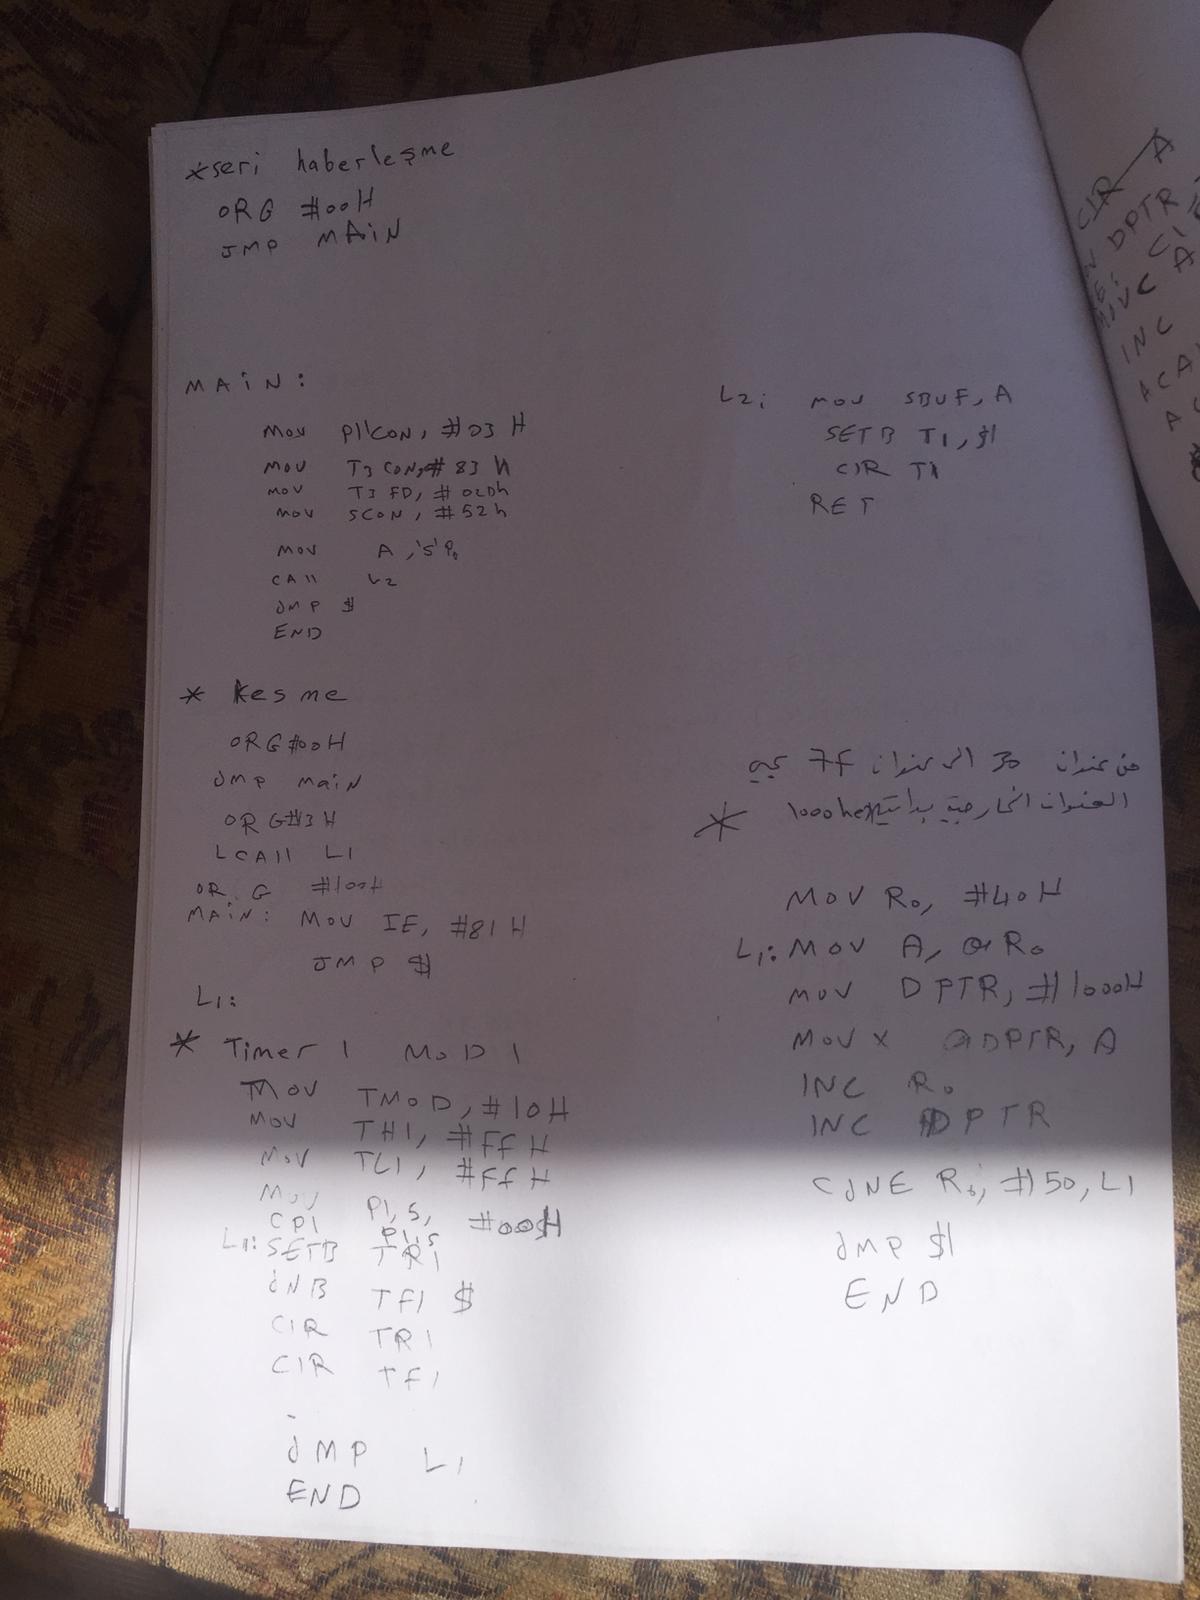 *seri haberleşme
ORG #00H
JMP MAiN
MAiN:
MOV P11CON, #03H
MOV T3CON, #83h
MOV T3FD, #02Dh
MOV SCON, #52h
MOV A,'S'
CAll L2
JMP $
END
L2: MOV SBUF, A
SETB T1, $
ClR T1
RET
* Kesme
ORG #00H
JMP maiN
ORG#3H
LCAll L1
ORG #100H
MAiN: MOV IE, #81H
JMP $
L1:
* Timer 1 MOD 1
MOV TMOD, #10H
MOV TH1, #ffH
MOV TL1, #ffH
MOV P1,5, #00H
CPl P1,5
L1: SETB TR1
JNB TF1 $
ClR TR1
ClR TF1
JMP L1
END
من عنوان 30 الى عنوان 7f
* العنوان الخارجية 1000hex
MOV R0, #40H
L1: MOV A, @R0
MOV DPTR, #1000H
MOVX @DPTR, A
INC R0
INC DPTR
CJNE R0, #50, L1
JMP $
END
ClR A
DPTR
MOVC A
INC
ACAl